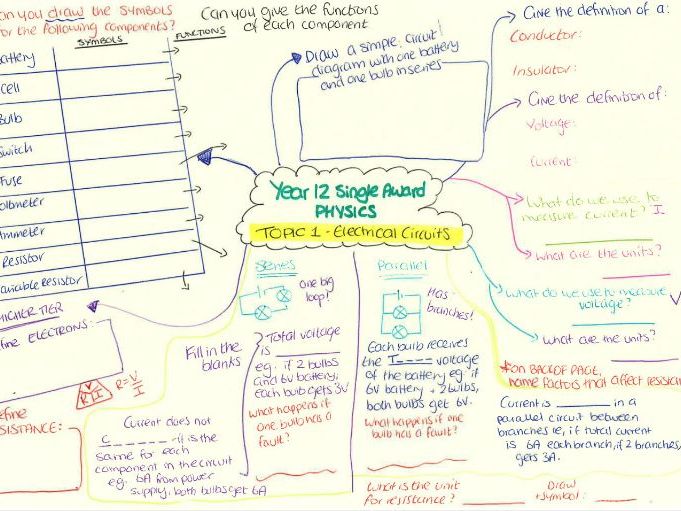 an you draw the symbols
or the following components?
SYMBOLS
FUNCTIONS
attery
cell
Bulb
Switch
Fuse
oltmeter
mmeter
Resistor
ariable Resistor
Can you give the functions
of each component
Draw a simple circuit
diagram with one battery
and one bulb in series
Give the definition of a:
Conductor:
Insulator:
Give the definition of:
Voltage:
Current:
Year 12 Single Award
PHYSICS
TOPIC 1 - Electrical Circuits
What do we use to
measure current? I
What are the units?
What do we use to measure
voltage? V
What are the units?
HIGHER TIER
fine ELECTRONS:
V
R I
R = V
I
efine
SISTANCE:
Series
one big
loop!
Fill in the
blanks
Total voltage
is
eg. if 2 bulbs
and 6V battery,
each bulb gets 3V
What happens if
one bulb has a
fault?
Current does not
C _ _ _ _ _ - it is the
same for each
component in the circuit
eg. 6A from power
supply, both bulbs get 6A
Parallel
Has
branches!
Each bulb receives
the T _ _ _ _ voltage
of the battery eg. if
6V battery + 2 bulbs,
both bulbs get 6V.
What happens if one
bulb has a fault?
*on BACK OF PAGE,
name factors that affect resistan
Current is ________ in a
parallel circuit between
branches ie, if total current
is 6A each branch, if 2 branches,
gets 3A.
What is the unit
for resistance?
Draw
symbol: